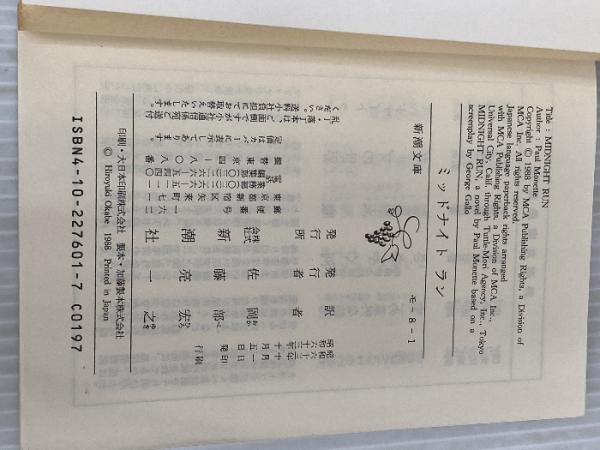 Title : MIDNIGHT RUN
Author : Paul Monette
Copyright © 1988 by MCA Publishing Rights, a Division of
MCA Inc. All rights reserved.
Japanese language paperback rights arranged
with MCA Publishing Rights, a Division of MCA Inc.,
Universal City, Calif. through Tuttle-Mori Agency, Inc., Tokyo
MIDNIGHT RUN, a novel by Paul Monette based on a
screenplay by George Gallo
ミッドナイト ラン
新潮文庫
モ-8-1
昭和六十三年
十月
発行
訳者 岡部宏之
発行者 佐藤亮一
発行所 株式会社 新潮社
定価はカバーに表示してあります。
乱丁・落丁本は、ご面倒ですが小社通信係宛ご送付
ください。送料小社負担にてお取替えいたします。
印刷・大日本印刷株式会社 製本・加藤製本株式会社
© Hiroyuki Okabe 1988 Printed in Japan
ISBN4-10-227601-7 C0197